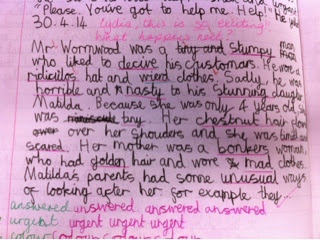 "Please. You've got to help me. Help! he
30.4.14 Lydia, this is so exciting!
What happens next?
Mr Wormwood was a tiny and stumpy man
who liked to decive his customars. He wore a
ridicilos hat and wierd clothes. Sadly, he was
horrible and nasty to his stunning daughter
Matilda. Because she was only 4 years old she
was tiny. Her chestnut hair
over her shouders and she was and
scared. Her mother was a bonkers woman,
who had golden hair and wore mad clothes.
Matilda's parents had some unusual ways
of looking after her for example they
answered answered answered answered
urgent urgent urgent urgent